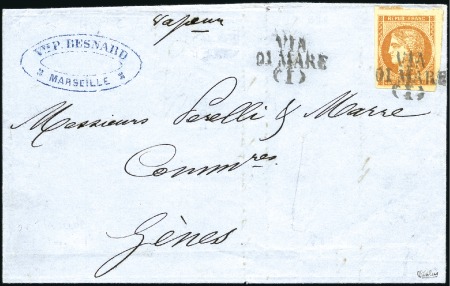 Vapeur
Vve P. BESNARD
MARSEILLE
VIA
DI MARE
(I)
REPUB. FRANC.
VIA
DI MARE
(I)
Messieurs Perelli & Marre
Comm.res
Gênes